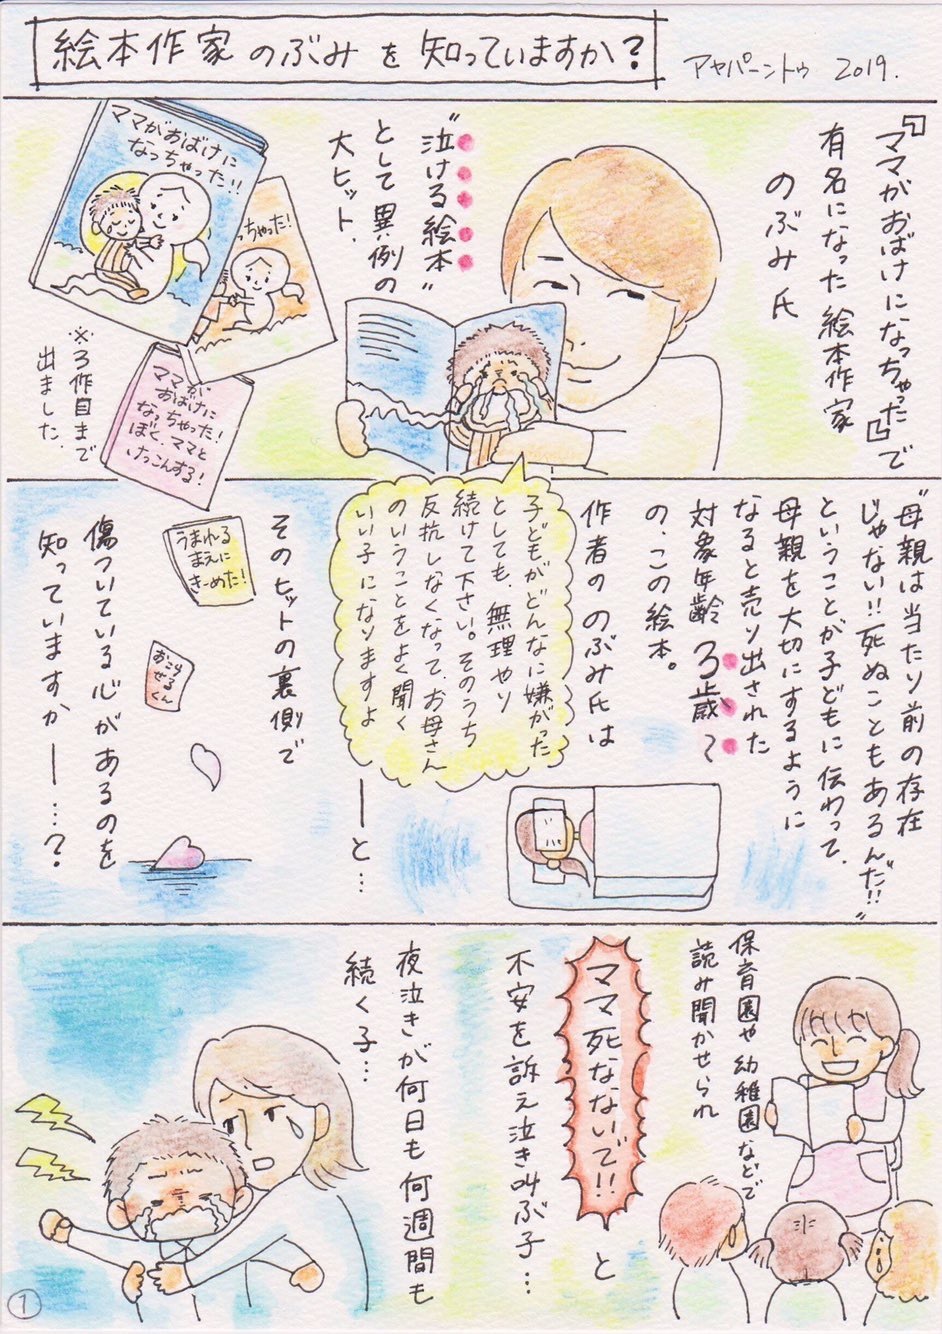 絵本作家のぶみを知っていますか?
アヤパーントゥ 2019.
『ママがおばけになっちゃった』で
有名になった絵本作家
のぶみ氏
"泣ける絵本"
として異例の
大ヒット.
ママがおばけに
なっちゃった!!
っちゃった!
ママが
おばけに
なっちゃった!
ぼく、ママと
けっこんする!
※3作目まで
出ました.
"母親は当たり前の存在
じゃない!!死ぬこともあるんだ!!"
ということが子どもに伝わって、
母親を大切にするように
なると売り出された
対象年齢3歳〜
の、この絵本。
作者ののぶみ氏は
子どもがどんなに嫌がった
としても、無理やり
続けて下さい。そのうち
反抗しなくなって、お母さん
のいうことをよく聞く
いい子になりますよ
―と…
そのヒットの裏側で
傷ついている心があるのを
知っていますか―…?
うまれる
まえに
きーめた!
おこら
せる
くん
保育園や幼稚園などで
読み聞かせられ
ママ死なないで!!と
不安を訴え泣き叫ぶ子…
夜泣きが何日も何週間も
続く子…
1